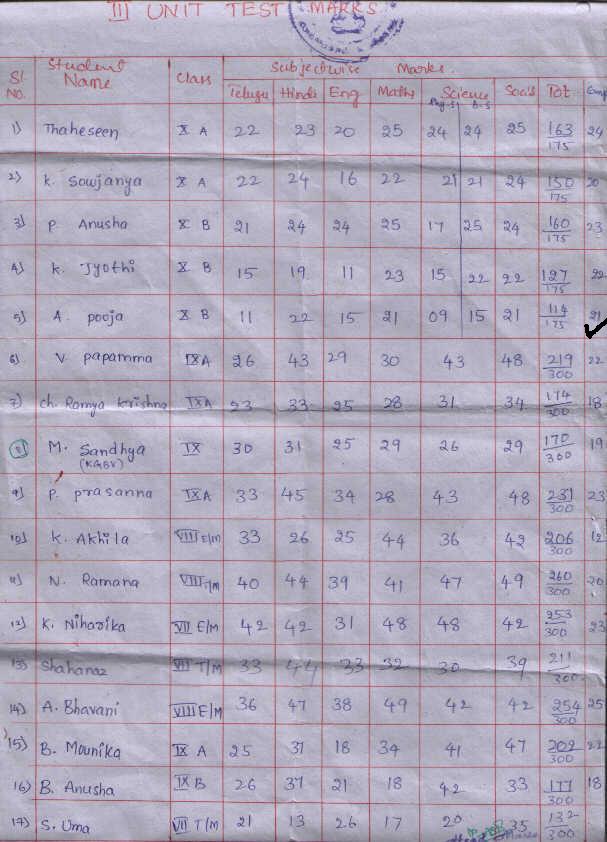 III UNIT TEST MARKS
Sl. No. Student Name Class Subjectwise Marks.
Telugu Hindi Eng Maths Science Soc's Tot
Phy.S B.S
1) Thaheseen X A 22 23 20 25 24 24 25 163/175 24
2) K. Sowjanya X A 22 24 16 22 21 21 24 150/175 20
3) P. Anusha X B 21 24 24 25 17 25 24 160/175 23
4) K. Jyothi X B 15 19 11 23 15 22 22 127/175 22
5) A. pooja X B 11 22 15 21 09 15 21 114/175 21
6) V. papamma IX A 26 43 29 30 43 48 219/300 22
7) ch. Ramya Krishna IX A 23 33 25 28 31 34 174/300 18
8) M. Sandhya (KGBV) IX 30 31 25 29 26 29 170/300 19
9) P. prasanna IX A 33 45 34 28 43 48 231/300 23
10) K. Akhila VIII E/M 33 26 25 44 36 42 206/300 12
11) N. Ramana VIII T/M 40 44 39 41 47 49 260/300 20
12) K. Niharika VII E/M 42 42 31 48 48 42 253/300 23
13) Shahanaz VII T/M 33 44 33 32 30 39 211/300
14) A. Bhavani VIII E/M 36 47 38 49 42 42 254/300 25
15) B. Mounika IX A 25 37 18 34 41 47 202/300 22
16) B. Anusha IX B 26 37 21 18 42 33 177/300 18
17) S. Uma VII T/M 21 13 26 17 20 35 132/300